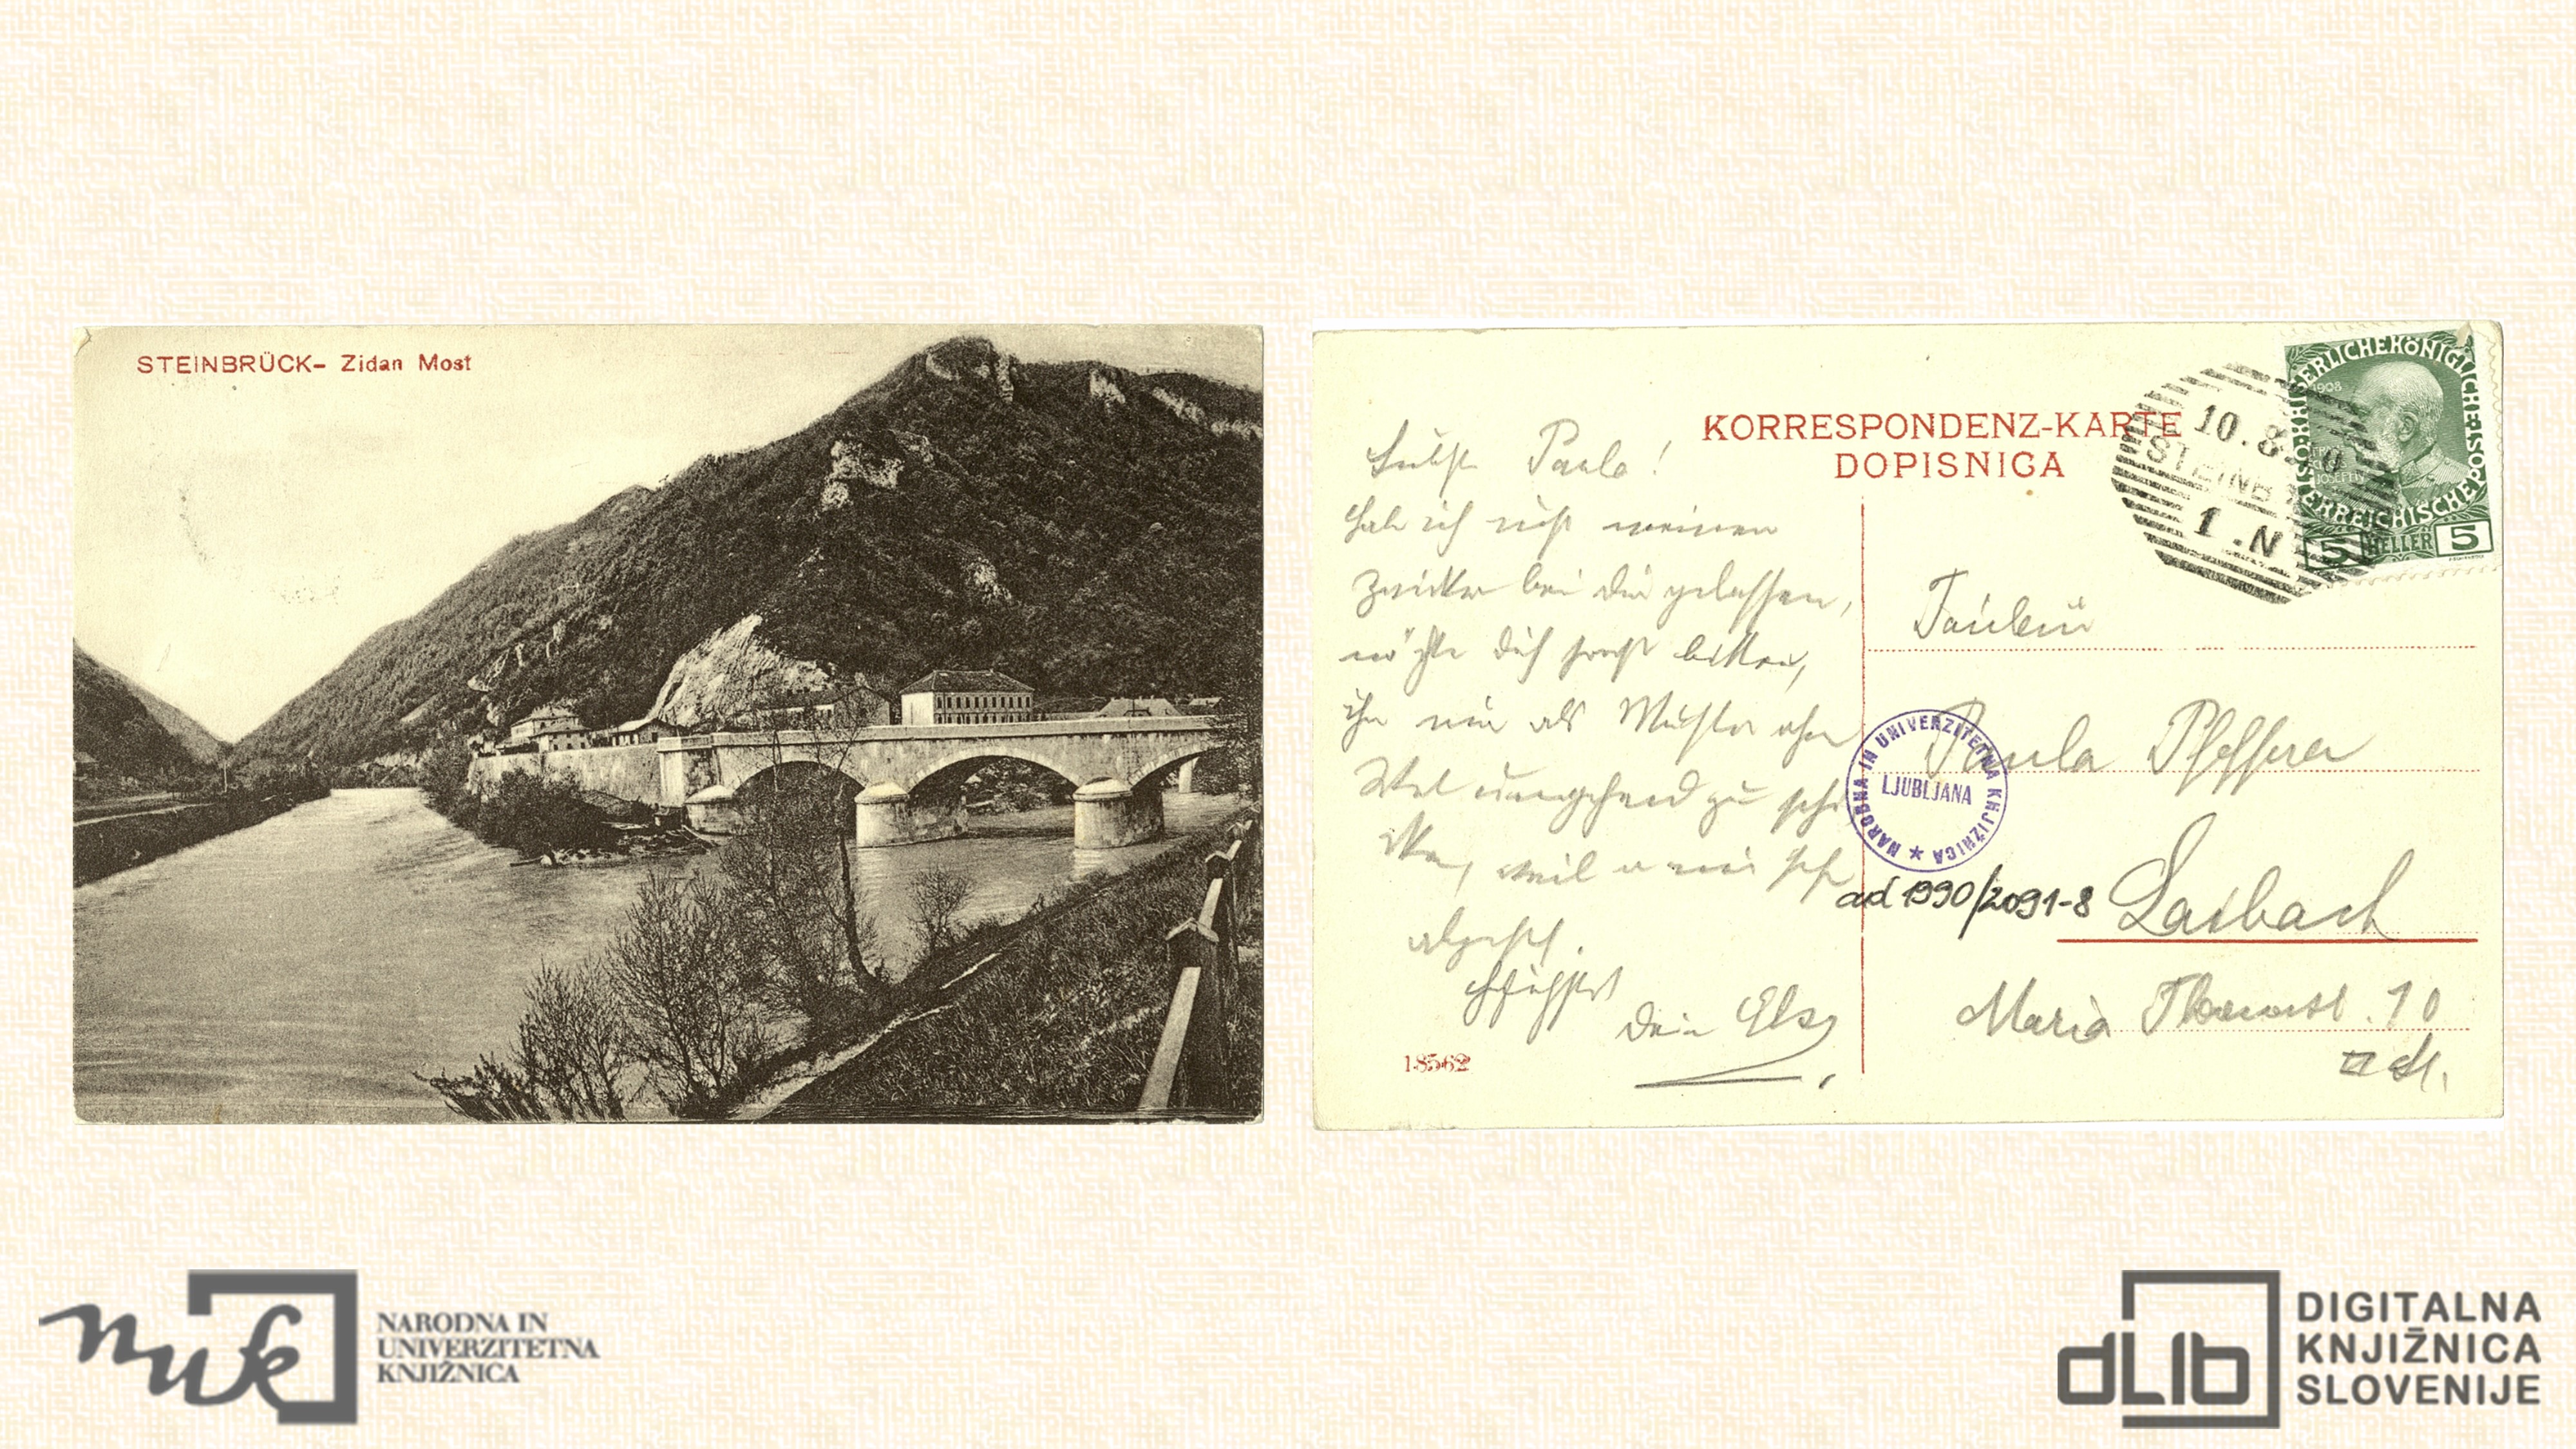 STEINBRÜCK- Zidan Most
KORRESPONDENZ-KARTE
DOPISNICA
Paula!
hab ich nicht meinen
Zwicker bei dir gelassen,
möchte dich bitten,
ihn mir als Muster ohne
umgehend zu schi
cken, weil er mir sehr
abgeht.
Dein
18562
Paula Pfefferer
Laibach
Maria 10
10.8. 0
STEINB
1.N
KAISERLICHE KÖNIGLICHE ÖSTERREICHISCHE POST
1908
5 HELLER 5
NARODNA IN UNIVERZITETNA KNJIŽNICA
LJUBLJANA
ad 1990/2091-8
nuk
NARODNA IN
UNIVERZITETNA
KNJIŽNICA
dLib
DIGITALNA
KNJIŽNICA
SLOVENIJE